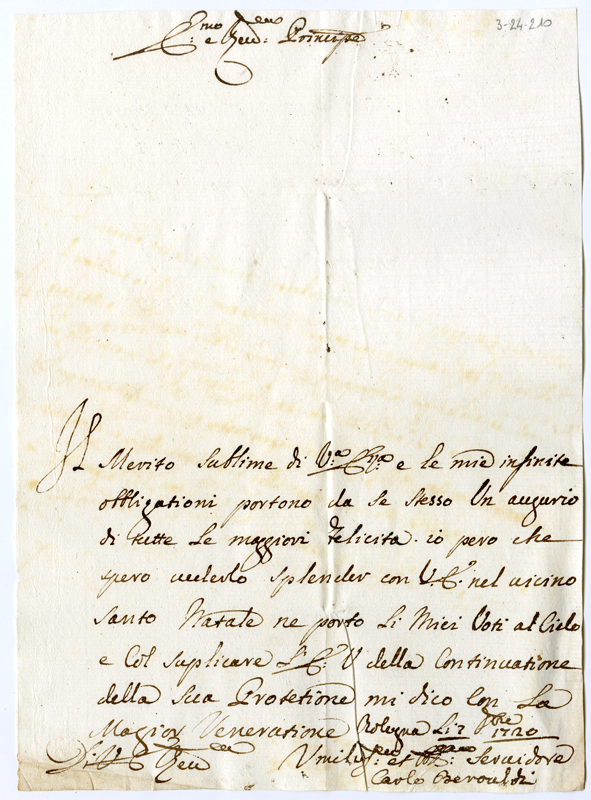 3-24-210
E.mo e Reu.mo Principe
Il Merito sublime di V.a E.za e le mie infinite
obbligationi portono da se stesso Un augurio
di tutte Le maggiori felicita. io pero che
spero uederlo splender con V. E.a nel uicino
santo Natale ne porto Li Miei Voti al Cielo
e Col suplicare L' E.a V della Continuatione
della sua Protetione mi dico Con La
Magior Veneratione Bologna Li 7 1720
Di V. E. Reu.ma Umiliss. et Servidore
Carlo Beroaldi